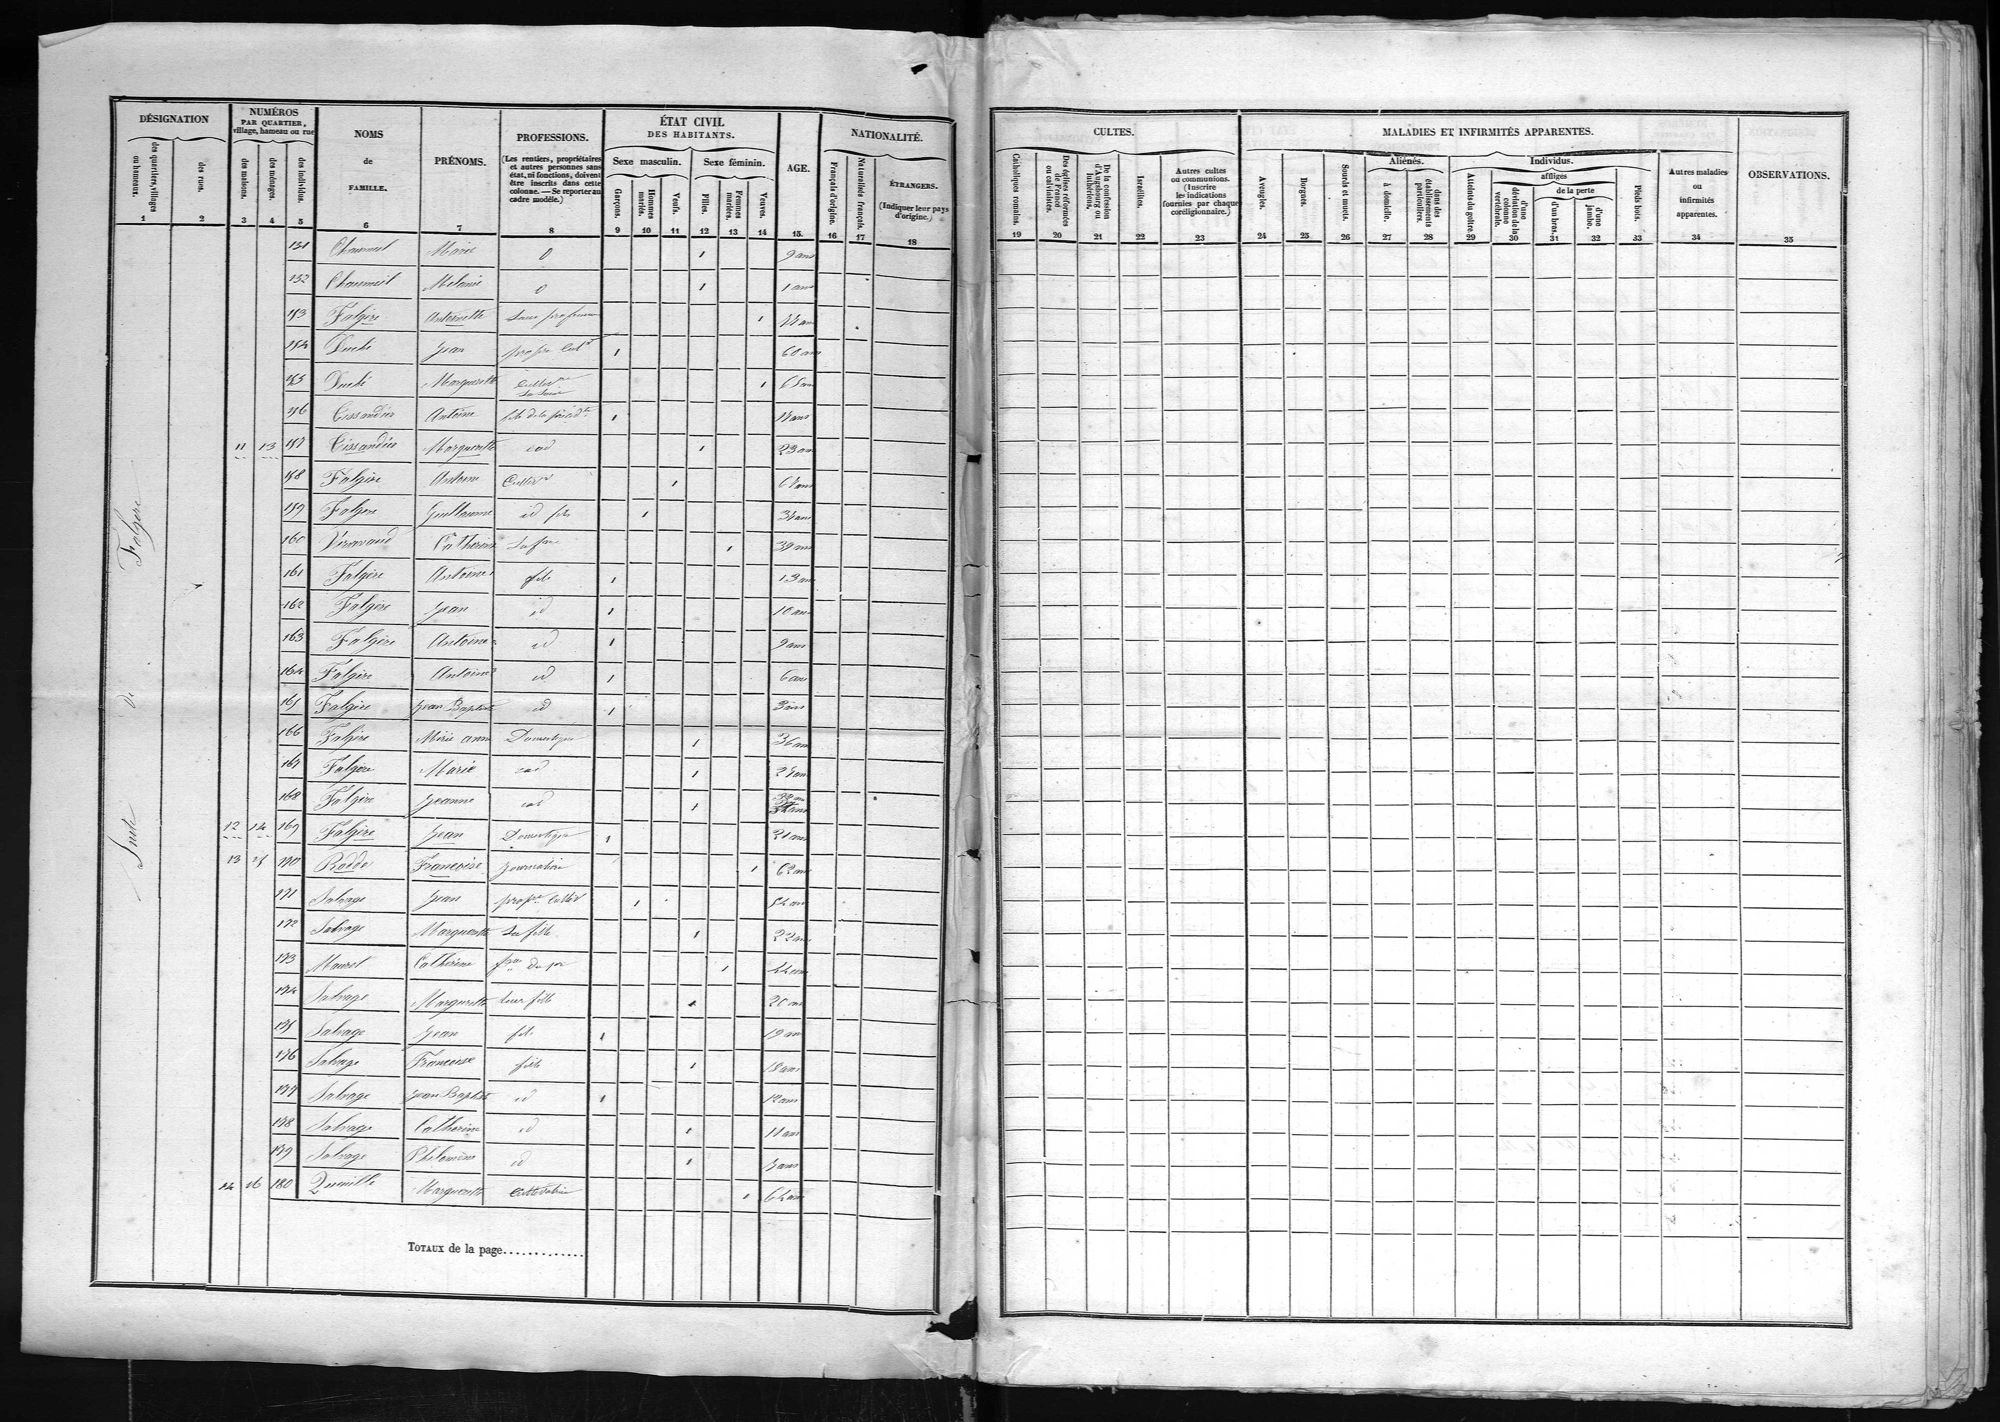 DÉSIGNATION
des quartiers, villages ou hameaux.
des rues.
NUMÉROS
PAR QUARTIER,
village, hameau ou rue
des maisons.
des ménages.
des individus.
NOMS
de
FAMILLE.
PRÉNOMS.
PROFESSIONS.
(Les rentiers, propriétaires
et autres personnes sans
état, ni fonctions, doivent
être inscrits dans cette
colonne. — Se reporter au
cadre modèle.)
ÉTAT CIVIL
DES HABITANTS.
Sexe masculin.
Sexe féminin.
Garçons.
Hommes mariés.
Veufs.
Filles.
Femmes mariées.
Veuves.
AGE.
NATIONALITÉ.
Français d'origine.
Naturalisés français.
ÉTRANGERS.
(Indiquer leur pays
d'origine.)
1 2 3 4 5 6 7 8 9 10 11 12 13 14 15. 16 17 18
Suite de Falgère
151 Chaumeil Marie 0 1 9 ans
152 Chaumeil Melanie 0 1 1 ans
153 Falgère Antoinette Sans profession 1
154 Jean 1 60 ans
155 Marguerite 1
156 Antoine 1
11 13 157 Marguerite ead 1 23 an
158 Falgère Antoine Cultivr 1
159 Falgère Guillaume id fils 1
160 Catherine Sa fme 1 39 ans
161 Falgère Antoine fils 1 13 an
162 Falgère Jean id 1 10 an
163 Falgère Antoine id 1 9 ans
164 Falgère Antoine id 1 6 ans
165 Falgère Jean Baptiste id 1 3 ans
166 Falgère Marie anne Domestique 1 36 an
167 Falgère Marie ead 1
168 Falgère Jeanne ead 1
12 14 169 Falgère Jean Domestique 1 31 ans
13 15 170 Badde Françoise Journalière 1 62 an
171 Salvage Jean propre Cultivr 1
172 Salvage Marguerite Sa fille 1 22 an
173 Maurel Catherine 1
174 Salvage Marguerite leur fille 1 20 an
175 Salvage Jean fils 1 19 an
176 Salvage Françoise fille 1 18 ans
177 Salvage Jean Baptiste id 1 12 ans
178 Salvage Catherine id 1 11 ans
179 Salvage Philomène id 1
14 16 180 Queuille Marguerite Cultivatrice 1
TOTAUX de la page
CULTES.
Catholiques romains.
Des églises réformées de France ou calvinistes.
De la confession d'Augsbourg ou luthériens.
Israélites.
Autres cultes
ou communions.
(Inscrire
les indications
fournies par chaque
coreligionnaire.)
MALADIES ET INFIRMITÉS APPARENTES.
Aveugles.
Borgnes.
Sourds et muets.
Aliénés.
à domicile.
dans des établissements particuliers.
Individus.
Atteints du goître.
affligés
d'une déviation de la colonne vertébrale.
de la perte
d'un bras.
d'une jambe.
Pieds bots.
Autres maladies
ou
infirmités
apparentes.
OBSERVATIONS.
19 20 21 22 23 24 25 26 27 28 29 30 31 32 33 34 35